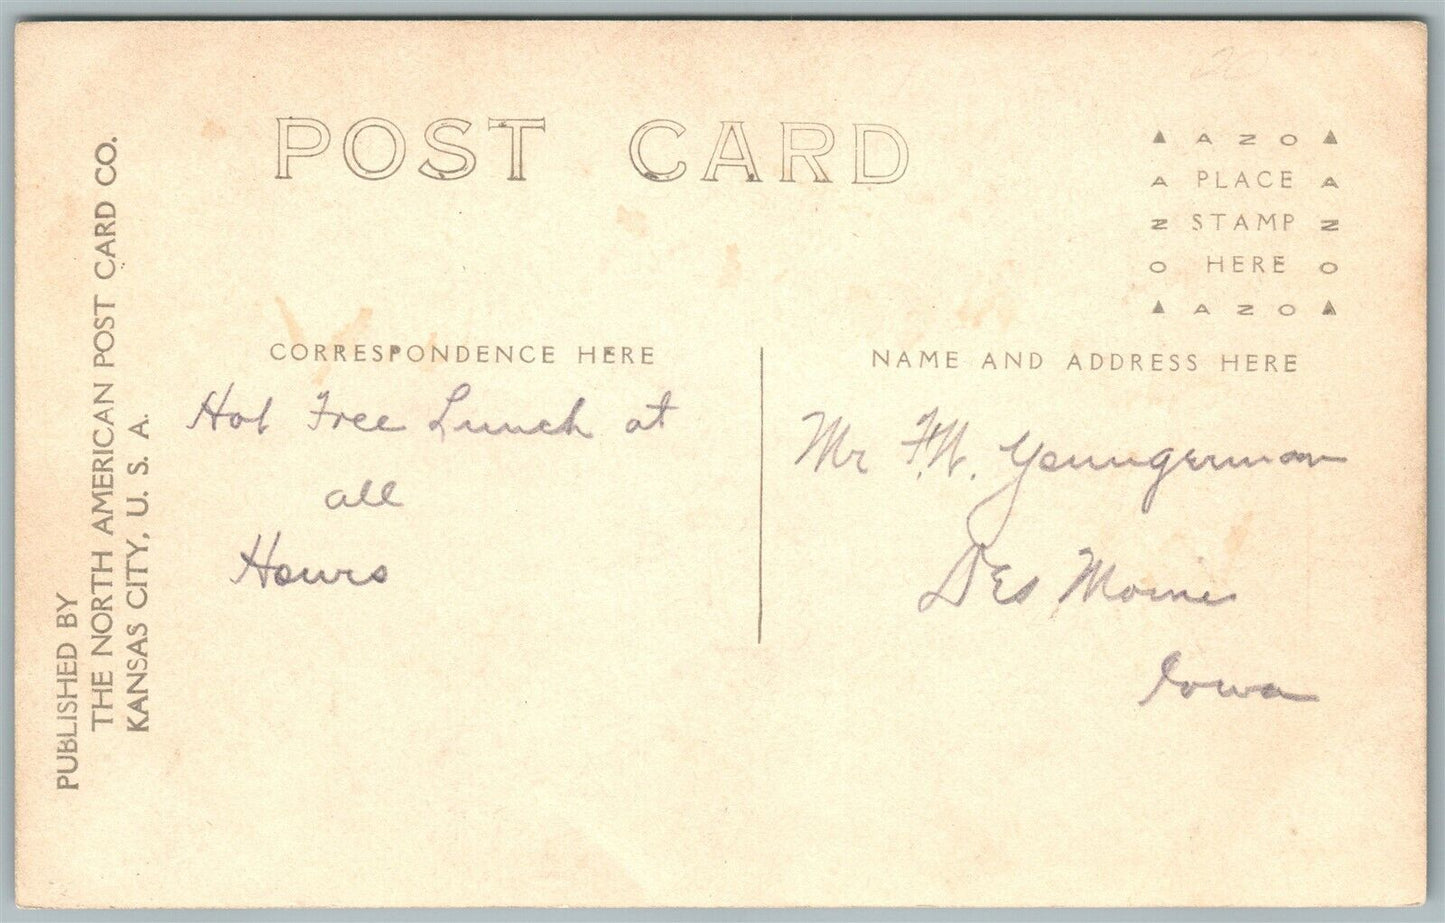 PUBLISHED BY
THE NORTH AMERICAN POST CARD CO.
KANSAS CITY, U. S. A.
POST CARD
20
▲ A Z O ▲
A PLACE A
Z STAMP Z
O HERE O
▲ A Z O ▲
CORRESPONDENCE HERE
Hot Free Lunch at
all
Hours
NAME AND ADDRESS HERE
Mr F.W. Youngerman
Des Moines
Iowa